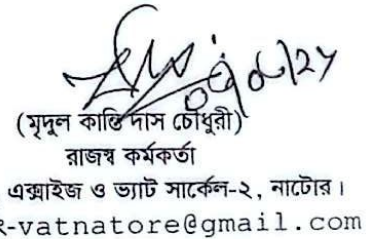 ০৫/০৮/২৫
(মৃদুল কান্তি দাস চৌধুরী)
রাজস্ব কর্মকর্তা
এক্সাইজ ও ভ্যাট সার্কেল-২, নাটোর।
-vatnatore@gmail.com